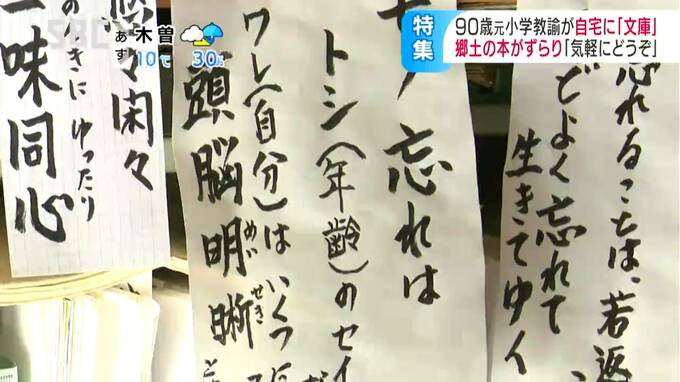 SBC
あす 木曽
10℃ 30%
特集
90歳元小学教諭が自宅に「文庫」
郷土の本がずらり「気軽にどうぞ」
忘れることは、若返
どよく忘れて
生きてゆく
忘れは
トシ(年齢)のセイ
ワレ(自分)は いくつ
頭脳明晰
めい せき
悠々閑々
のんきに ゆったり
一味同心